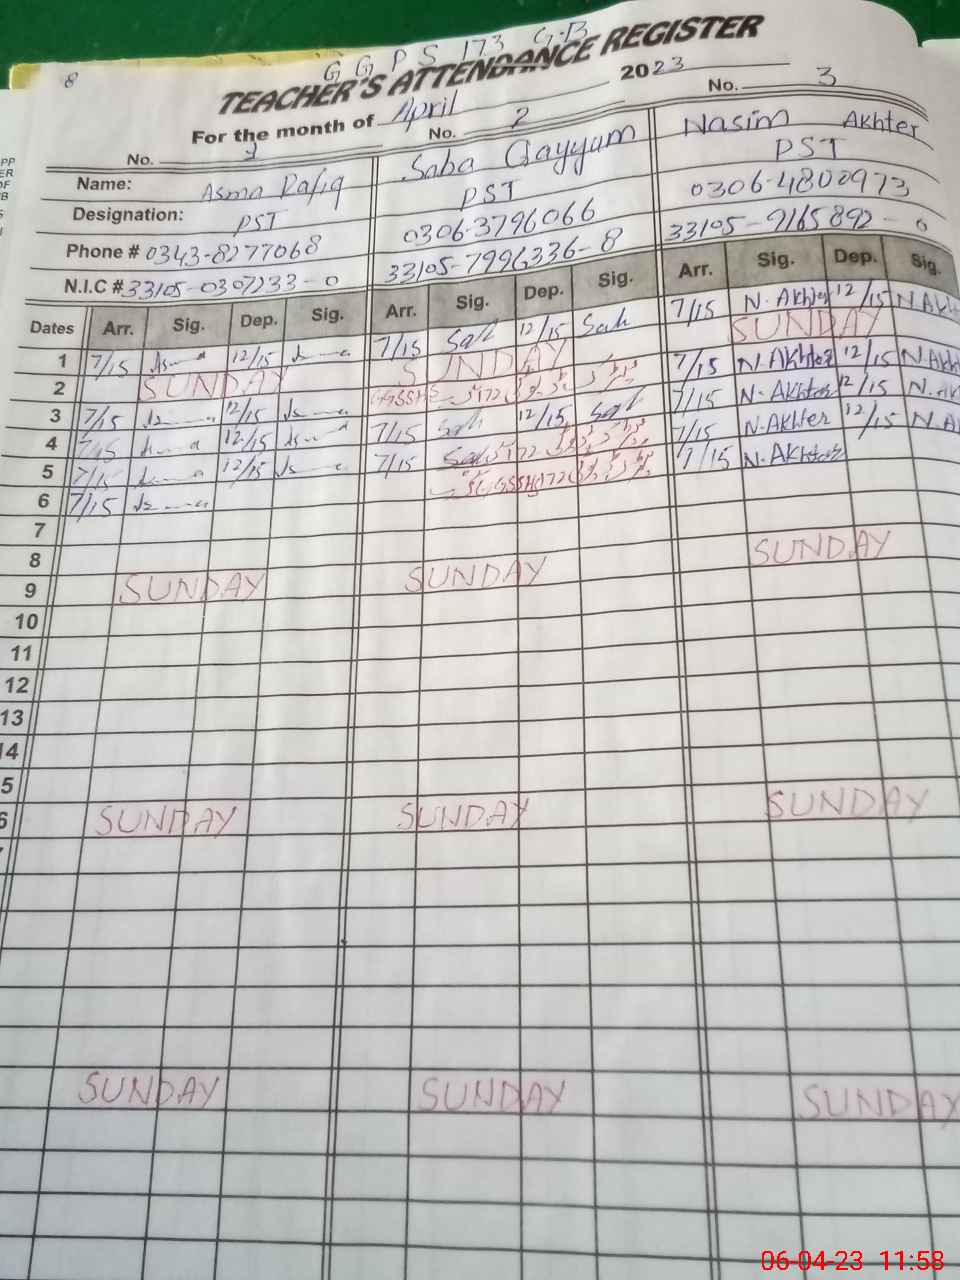 8
G G P S 173 G.B
TEACHER'S ATTENDANCE REGISTER
For the month of April 2023
No. 1 No. 2 No. 3
Name: Asma Rafiq Saba Qayyum Nasim Akhter
Designation: PST PST PST
Phone # 0343-8277068 0306-3796066 0306-4800973
N.I.C # 33105-0307233-0 33105-7996336-8 33105-9165892-0
Dates Arr. Sig. Dep. Sig. Arr. Sig. Dep. Sig. Arr. Sig. Dep. Sig.
1 7/15 12/15 7/15 Sah 12/15 Sah 7/15 N.Akhter 12/15
2 SUNDAY SUNDAY SUNDAY
3 7/15 12/15 7/15 N.Akhter 12/15
4 7/15 12/15 7/15 Sah 12/15 Sah 7/15 N.Akhter 12/15
5 7/15 12/15 7/15 Sah 7/15 N.Akhter 12/15
6 7/15 7/15 N.Akhter
7
8
9 SUNDAY SUNDAY SUNDAY
10
11
12
13
14
5
6 SUNDAY SUNDAY SUNDAY
SUNDAY SUNDAY SUNDAY
06-04-23 11:58